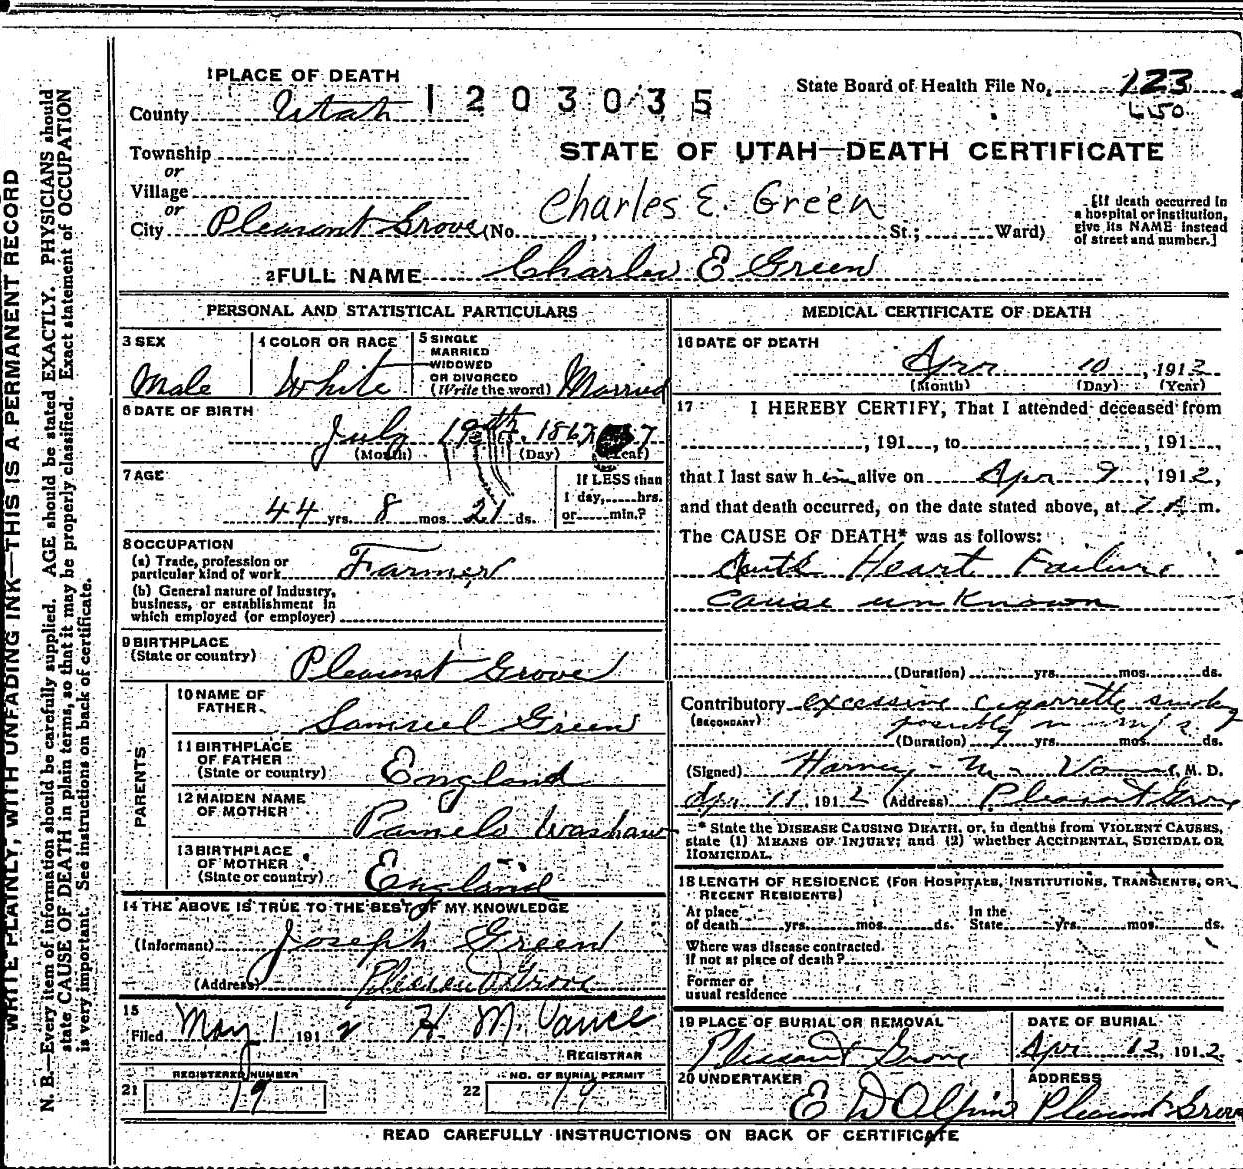 WRITE PLAINLY, WITH UNFADING INK—THIS IS A PERMANENT RECORD
N. B.—Every item of information should be carefully supplied. AGE should be stated EXACTLY. PHYSICIANS should
state CAUSE OF DEATH in plain terms, so that it may be properly classified. Exact statement of OCCUPATION
is very important. See instructions on back of certificate.
1 PLACE OF DEATH
County Utah
1203035
State Board of Health File No. 123
Township
or
Village
or
City Pleasant Grove (No. , St.; Ward)
STATE OF UTAH—DEATH CERTIFICATE
Charles E. Green
[If death occurred in
a hospital or institution,
give its NAME instead
of street and number.]
2 FULL NAME Charles E Green
PERSONAL AND STATISTICAL PARTICULARS
3 SEX
Male
4 COLOR OR RACE
White
5 SINGLE
MARRIED
WIDOWED
OR DIVORCED
(Write the word) Married
6 DATE OF BIRTH
July
(Month) (Day) (Year)
7 AGE
44 yrs. 8 mos. 21 ds.
If LESS than
1 day, hrs.
or min.?
8 OCCUPATION
(a) Trade, profession or
particular kind of work Farmer
(b) General nature of industry,
business, or establishment in
which employed (or employer)
9 BIRTHPLACE
(State or country) Pleasant Grove
PARENTS
10 NAME OF
FATHER Samuel Green
11 BIRTHPLACE
OF FATHER
(State or country) England
12 MAIDEN NAME
OF MOTHER Pamela
13 BIRTHPLACE
OF MOTHER
(State or country) England
14 THE ABOVE IS TRUE TO THE BEST OF MY KNOWLEDGE
(Informant) Joseph Green
(Address) Pleasant Grove
15
Filed May 1 1912 H. M. Vance
REGISTRAR
REGISTERED NUMBER
21 19
NO. OF BURIAL PERMIT
22 19
MEDICAL CERTIFICATE OF DEATH
16 DATE OF DEATH
Apr 10, 1912
(Month) (Day) (Year)
17 I HEREBY CERTIFY, That I attended deceased from
, 191 , to , 191 ,
that I last saw him alive on Apr 9, 1912,
and that death occurred, on the date stated above, at 7 A m.
The CAUSE OF DEATH* was as follows:
Heart Failure
Cause unknown
(Duration) yrs. mos. ds.
Contributory excessive cigarrette smoking
(SECONDARY) possibly
(Duration) yrs. mos. ds.
(Signed) Harvey M. Vance, M. D.
Apr 11, 1912 (Address) Pleasant Grove
* State the DISEASE CAUSING DEATH, or, in deaths from VIOLENT CAUSES,
state (1) MEANS OF INJURY; and (2) whether ACCIDENTAL, SUICIDAL OR
HOMICIDAL.
18 LENGTH OF RESIDENCE (FOR HOSPITALS, INSTITUTIONS, TRANSIENTS, OR
RECENT RESIDENTS)
At place
of death yrs. mos. ds.
In the
State yrs. mos. ds.
Where was disease contracted.
If not at place of death?
Former or
usual residence
19 PLACE OF BURIAL OR REMOVAL
Pleasant Grove
DATE OF BURIAL
Apr 12, 1912
20 UNDERTAKER
E D Olpin
ADDRESS
Pleasant Grove
READ CAREFULLY INSTRUCTIONS ON BACK OF CERTIFICATE